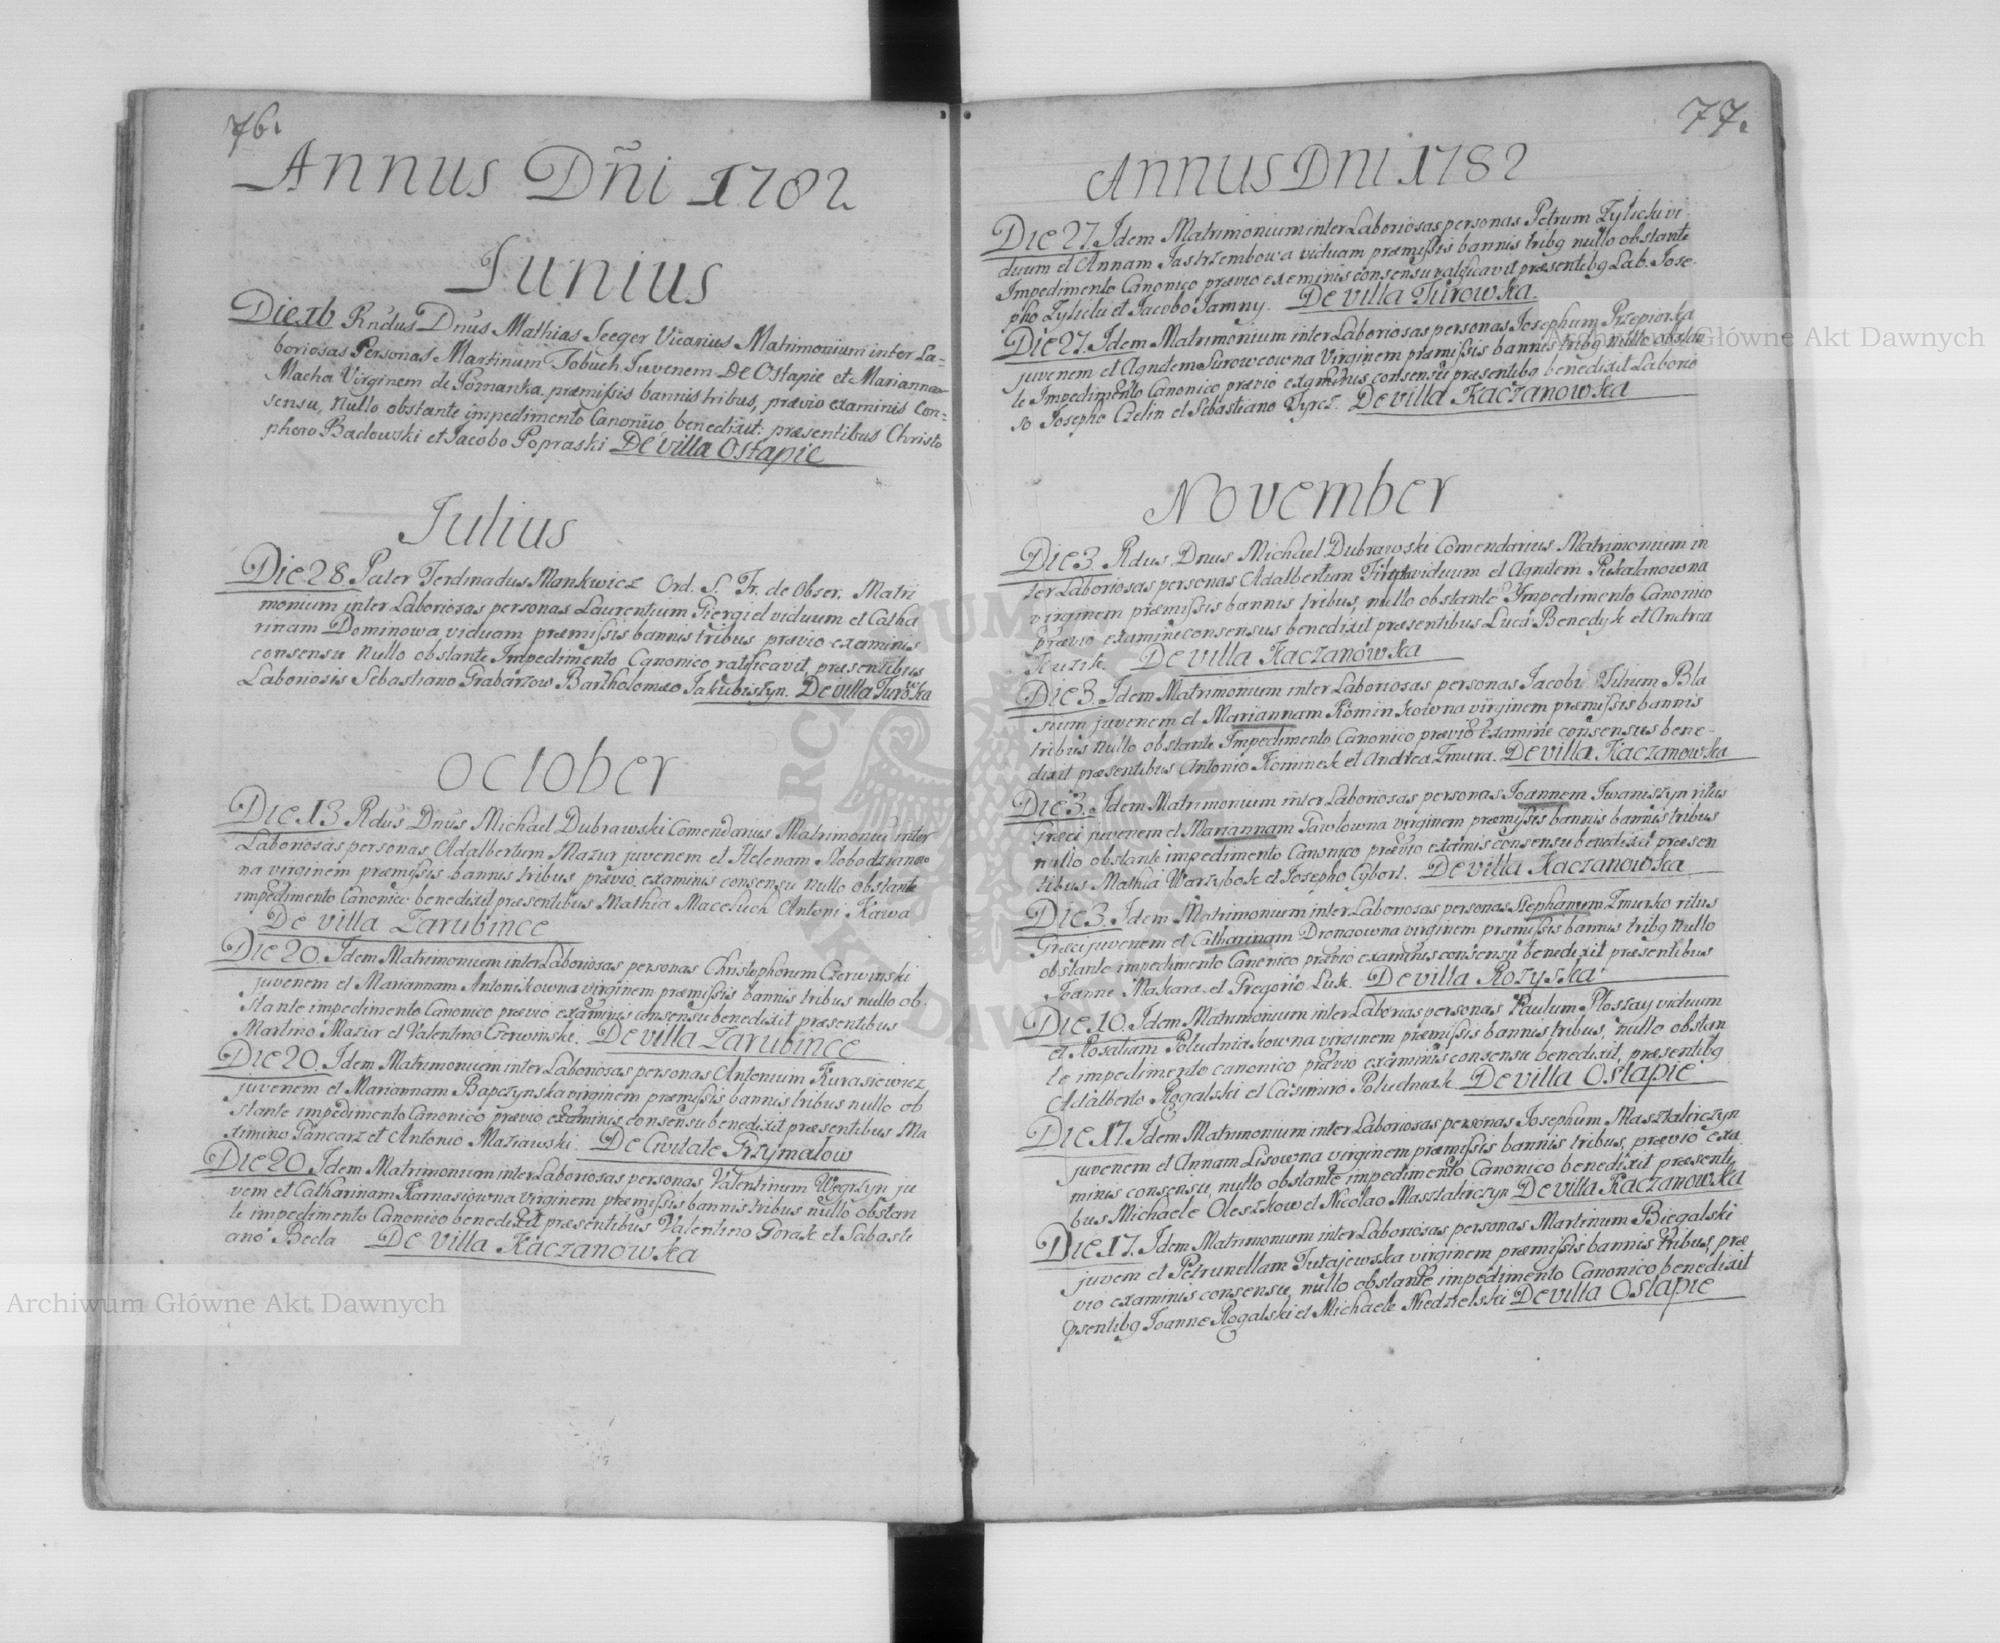 76.
Annus Dñi 1782
Iunius
Die 16 Rndus Dnus Mathias Seeger Vicarius Matrimonium inter La-
boriosas Personas Martinum Tobuch Iuvenem De Ostapie et Marianna
Macha Virginem de Poznanka præmissis bannis tribus, prævio examinis Con=
sensu, Nullo obstante impedimento Canonico, benedixit: præsentibus Christo
phoro Badowski et Iacobo Popraski De Villa Ostapie
Iulius
Die 28. Pater Ferdinadus Mankwicz Ord. S. Fr. de Obser. Matri
monium inter Laboriosas personas Laurentium Giergiel viduum et Catha
rinam Dominowa viduam præmissis bannis tribus prævio examinis
consensu Nullo obstante Impedimento Canonico ratificavit præsentibus
Laboriosis Sebastiano Grabarzow Bartholomæo Jakubiszyn. De villa Turowka
October
Die 13 Rdus Dnus Michael Dubrawski Comendarius Matrimoniu inter
Laboriosas personas Adalbertum Mazur juvenem et Helenam Slobodziano
na virginem præmissis bannis tribus prævio examinis consensu nullo obstante
impedimento Canonico benedixit præsentibus Mathia Maceluch Antoni Kawa
De villa Zarubince
Die 20. Idem Matrimonium inter Laboriosas personas Christophorum Czerwinski
juvenem et Mariannam Antonikowna virginem præmissis bannis tribus nullo ob
stante impedimento Canonico prævio examinis consensu benedixit præsentibus
Martino Mazur et Valentino Czerwinski. De villa Zarubince
Die 20. Idem Matrimonium inter Laboriosas personas Antonium Kurasiewicz
juvenem et Mariannam Bapczynska virginem præmissis bannis tribus nullo ob
stante impedimento Canonico prævio examinis consensu benedixit præsentibus Ma
ximino Pancarz et Antonio Maziawski. De Civitate Grzymalow
Die 20 Idem Matrimonium inter Laboriosas personas Valentinum Węgrzyn ju
vem et Catharinam Karnasiowna virginem præmissis bannis tribus nullo obstan
te impedimento Canonico benedixit præsentibus Valentino Gorak et Sabasti
ano Becla De Villa Kaczanowka
77.
Annus Dni 1782
Die 27. Idem Matrimonium inter Laboriosas personas Petrum Zylicki vi
duum et Annam Jastrzembowa viduam præmissis bannis tribq nullo obstante
Impedimento Canonico prævio exeminis consensu ratificavit præsentibq Lab. Jose.
pho Zylicki et Jacobo Jamny. De villa Turowka.
Die 27. Idem Matrimonium inter Laboriosas personas Josephum Przepiorka
juvenem et Agnetem Surowcowna Virginem præmissis bannis tribq nullo obstan
te Impedimento Canonico prævio examinis consensu præsentibq benedixit Laborio
so Josepho Czelin et Sebastiano Tyrcz. De villa Kaczanowka
November
Die 3. Rdus Dnus Michael Dubrawski Comendarius Matrimonium in
ter Laboriosas personas Adalbertum viduum et Agnitem Piekalanowna
virginem præmissis bannis tribus, nullo obstante Impedimento Canonico
prævio examine consensus benedixit præsentibus Luca Benedyk et Andrea
Kuzik. De villa Kaczanowka
Die 3. Idem Matrimonium inter Laboriosas personas Jacobi Filium Bla
sium juvenem et Mariannam Kominkowna virginem præmissis bannis
tribus nullo obstante Impedimento Canonico prævio Examine consensus bene-
dixit præsentibus Antonio Kominek et Andrea Zmura. De villa Kaczanowka
Die 3. Idem Matrimonium inter Laboriosas personas Joannem Iwaniszyn ritus
Græci juvenem et Mariannam Pawlowna virginem præmissis bannis bannis tribus
nullo obstante impedimento Canonico prævio examis consensu benedixit præsen
tibus Mathia Warzybok et Josepho Cybort. De villa Kaczanowka
Die 3. Idem Matrimonium inter Laboriosas personas Stephanum Zmurko ritus
Græci juvenem et Catharinam Drongowna virginem præmissis bannis tribq nullo
obstante impedimento Canonico prævio examinis consensu benedixit præsentibus
Joanne Makara et Gregorio Luk. De villa Rozyska
Die 10. Idem Matrimonium inter Laborias personas Paulum Plossay viduum
et Rosaliam Poludniakowna virginem præmissis bannis tribus, nullo obstan
te impedimento canonico prævio examinis consensu benedixit, præsentibq
Adalberto Rogalski et Casimiro Poludniak. De villa Ostapie
Die 17. Idem Matrimonium inter Laboriosas personas Josephum Masztalirczyn
juvenem et Annam Lisowna virginem præmissis bannis tribus, prævio exa
minis consensu, nullo obstante impedimento Canonico benedixit præsenti
bus Michaele Oleszkow et Nicolao Masztalirczyn De villa Kaczanowka
Die 17. Idem Matrimonium inter Laboriosas personas Martinum Biegalski
juvem et Petrunellam Tutajewska virginem præmissis bannis tribus, præ
vio examinis consensu, nullo obstante impedimento Canonico benedixit
psentibq Joanne Rogalski et Michaele Niedzielski De villa Ostapie
Archiwum Główne Akt Dawnych
Archiwum Główne Akt Dawnych
ARCHIWUM AKT DAWNYCH